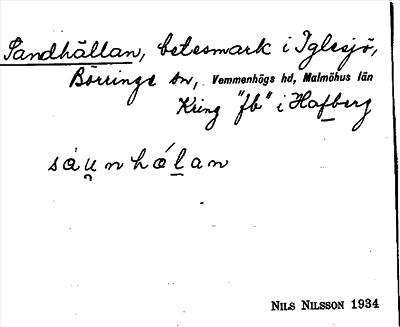 Sandhällan, betesmark i Iglesjö,
Börringe sn, Vemmenhögs hd, Malmöhus län
Kring "fb" i Hafberg
sáu̯nhál̲an
NILS NILSSON 1934